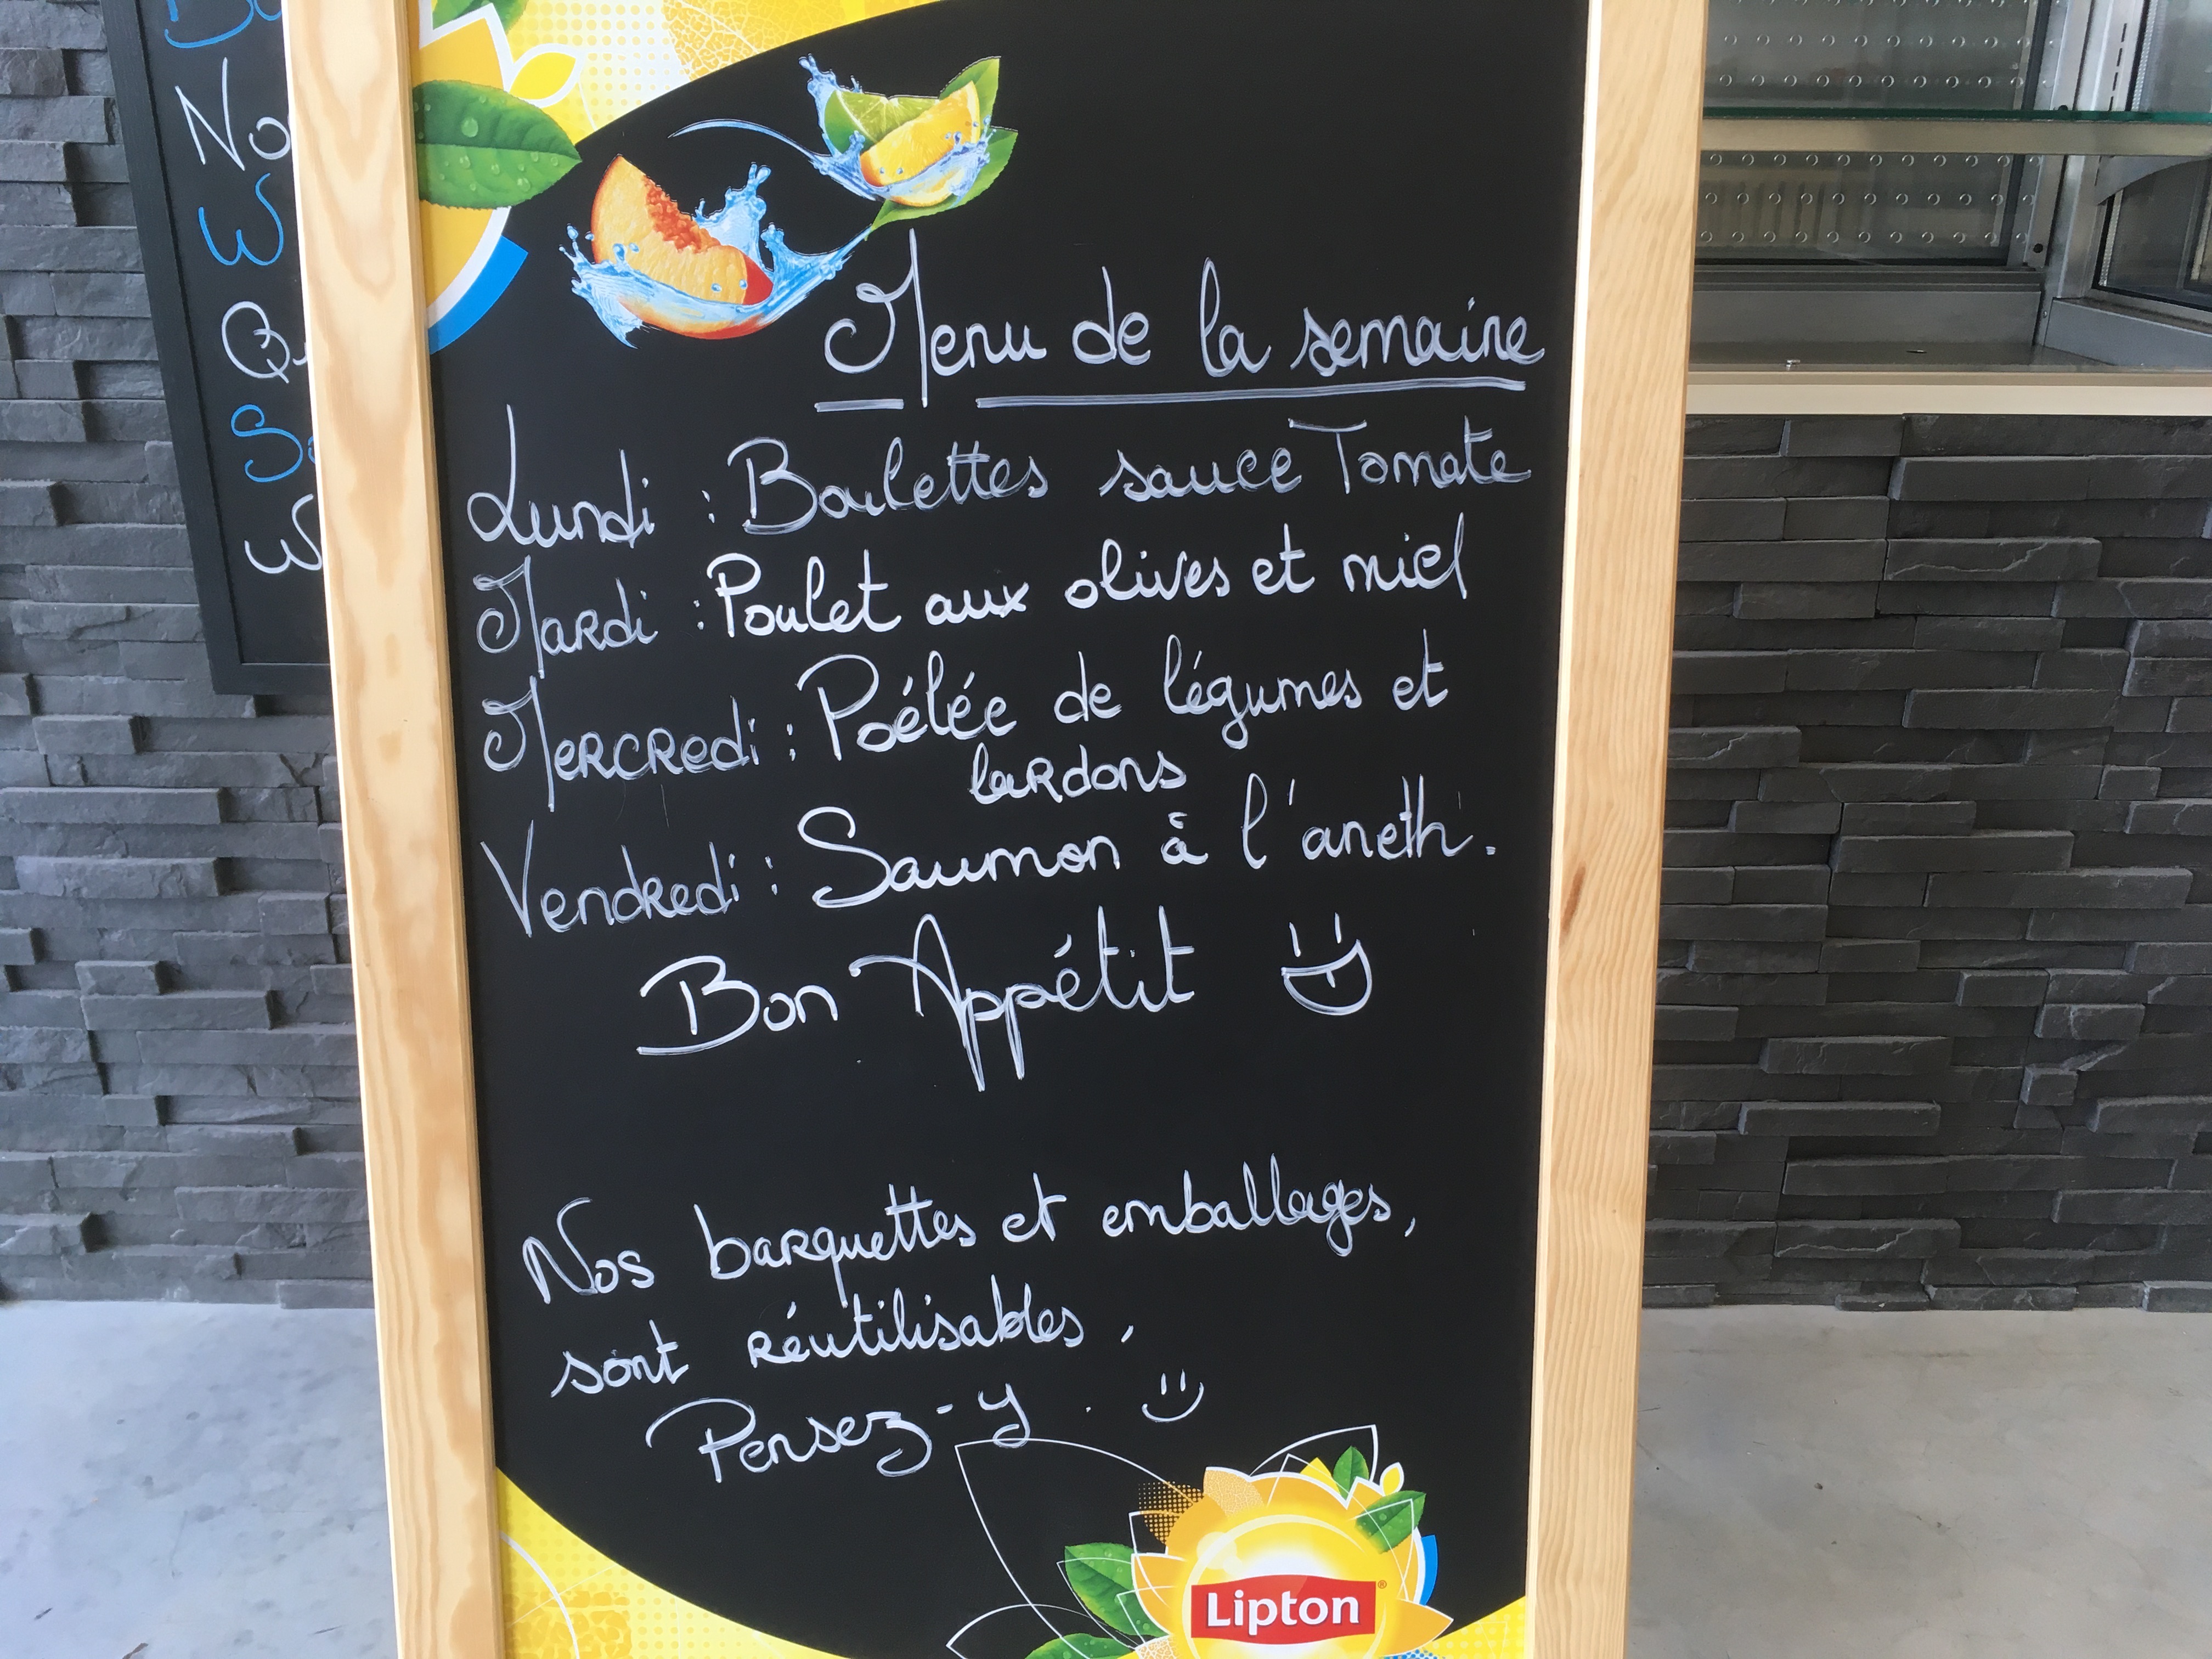 No
W
Menu de la semaine
Lundi : Boulettes sauce Tomate
Mardi : Poulet aux olives et miel
Mercredi : Poélée de légumes et
lardons
Vendredi : Saumon à l'aneth.
Bon Appétit
Nos barquettes et emballages,
sont réutilisables,
Pensez-y.
Lipton